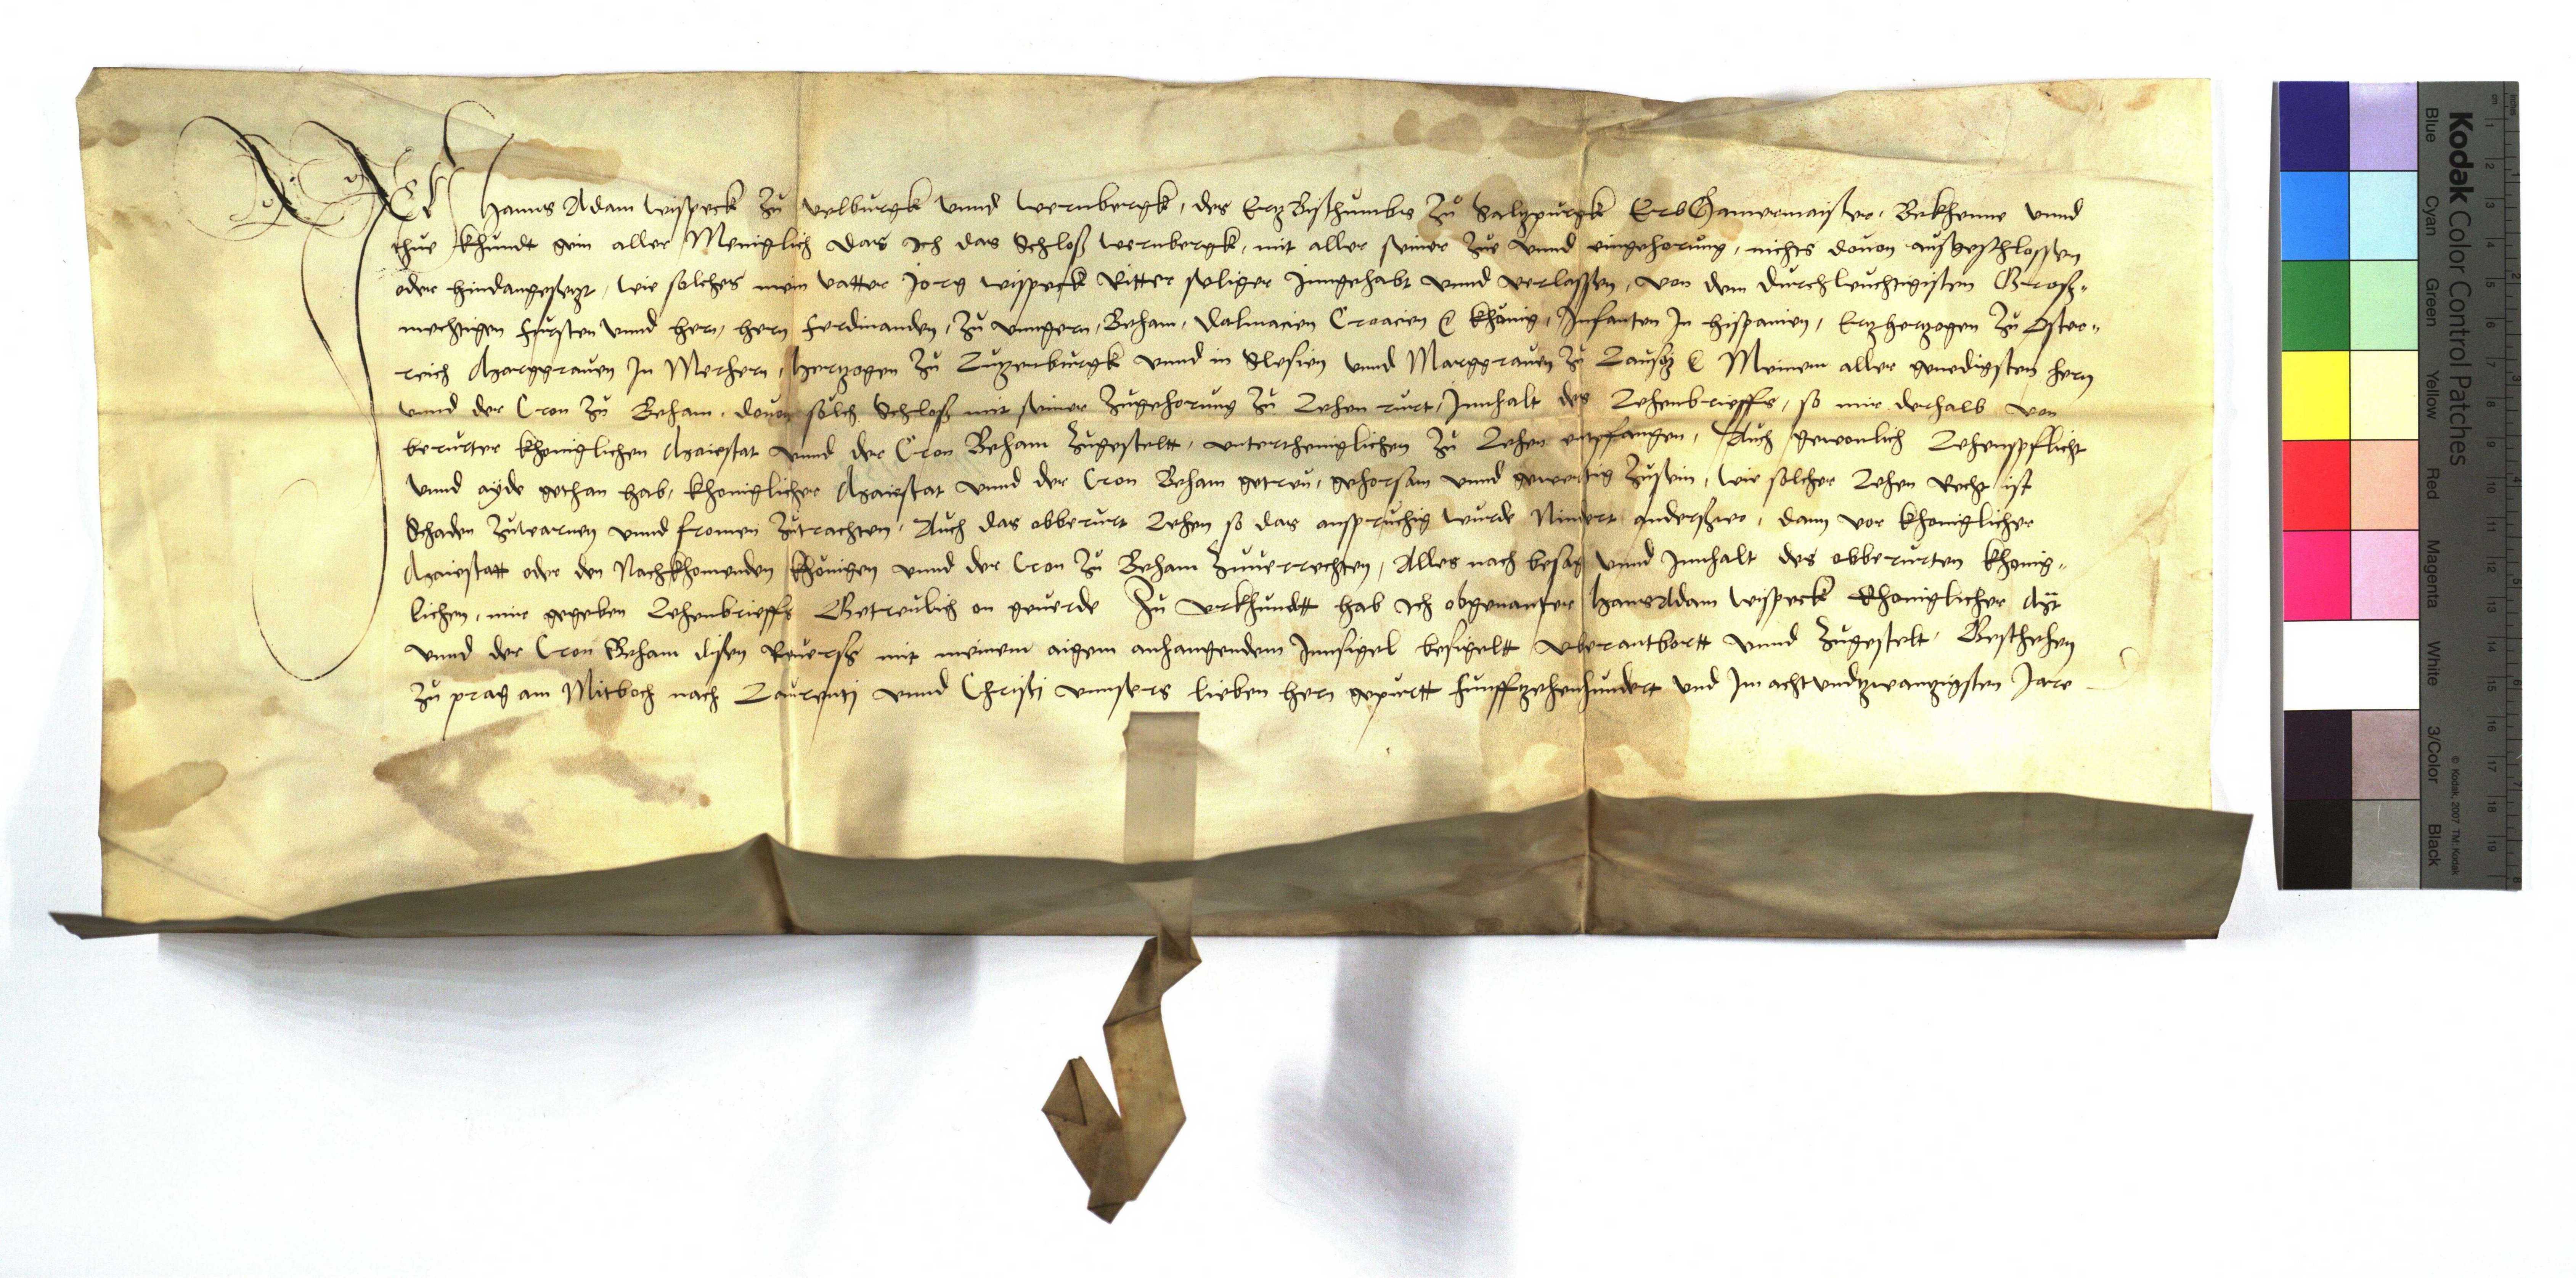 Ich Hanns Adam Wispeck zu Velburgk unnd Wernbergk, des ErzBisthumbs zů Saltzpurgk ErbCamermaister, Bekhenne unnd
thue khundt gein aller Meniglich das Ich das Schloß Wernbergk, mit aller seiner zue unnd eingehorung, nichts douon außgeschlossen
oder hindangesetzt, wie solches mein vatter Jorg Wispeck Ritter seliger Inngehabt unnd verlassen, von dem durchleuchtigisten Groß-
mechtigen Fursten unnd hern, hern Ferdinanden, zu Vnngern, Beham, Dalmacien Croacien &c Khönig, Infanten In Hispanien, Erzherzogen zu Oster-
reich Marggrauen In Merhern, Hertzogen zu Lutzenburgk unnd in Slesien unnd Marggrauen zu Lausitz &c Meinem aller genedigsten hern
unnd der Cron zu Beham, douon solch Schloß mit seiner zugehorung zu Lehen rurt, Innhalt des Lehenbrieffs, so mir derhalb von
berurter khoniglichen Maiestat unnd der Cron Beham zugestellt, untertheniglichen zu Lehen entpfangen, Auch gewonlich Lehenspflicht
unnd ayde gethan hab, khoniglicher Maiestat unnd der Cron Beham getreu, gehorsam unnd gewertig zusein, wie solcher Lehen Recht ist
Schaden zuwarnen unnd fromen zutrachten, Auch das obberurt Lehen so das anspruchig wurde Nindert anderßwo, dann vor khoniglicher
Maiestatt oder den Nachkhomenden khönigen unnd der Cron zu Beham zuuerrechten, Alles nach besag unnd Innhalt des obberurten khonig-
lichen, mir gegeben Lehenbrieffs Getreulich on geuerde Zu urkhundtt hab Ich obgenanter HannsAdam Wispeck Khoniglicher Mt
unnd der Cron Beham disen Reuerß mit meinem aigem anhangendem Innsigel besigeltt uberantbortt unnd zugestelt, Geschehen
zu prag am Mitboch nach Laurentj unnd Christi unnsers lieben hern gepurtt Funffzehenhundert und Im achtundtzwanzigsten Jare
Kodak Color Control Patches
© Kodak, 2007 TM: Kodak
Blue
Cyan
Green
Yellow
Red
Magenta
White
3/Color
Black
cm 1 2 3 4 5 6 7 8 9 10 11 12 13 14 15 16 17 18 19
inches 1 2 3 4 5 6 7 8